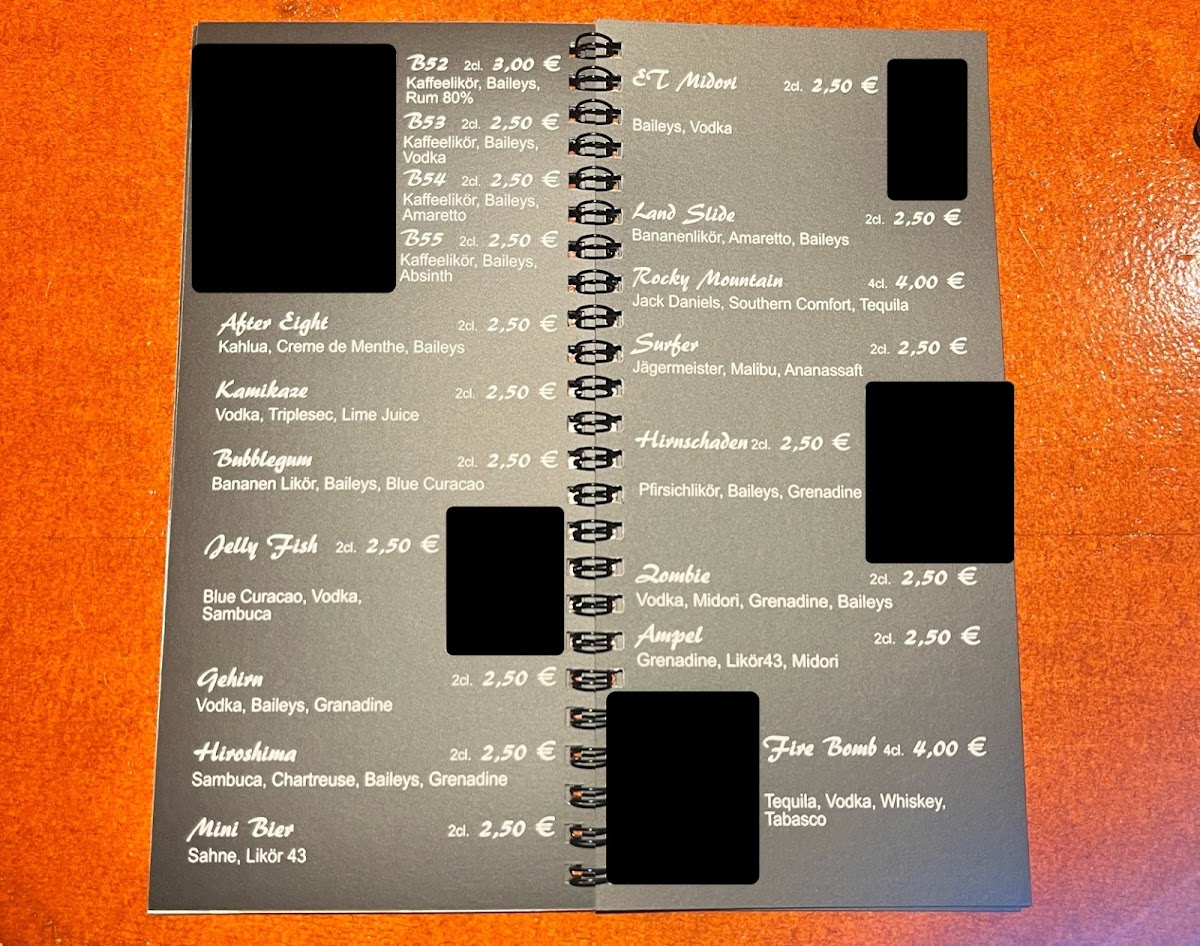 B52 2cl. 3,00 €
Kaffeelikör, Baileys,
Rum 80%
B53 2cl. 2,50 €
Kaffeelikör, Baileys,
Vodka
B54 2cl. 2,50 €
Kaffeelikör, Baileys,
Amaretto
B55 2cl. 2,50 €
Kaffeelikör, Baileys,
Absinth
After Eight 2cl. 2,50 €
Kahlua, Creme de Menthe, Baileys
Kamikaze 2cl. 2,50 €
Vodka, Triplesec, Lime Juice
Bubblegum 2cl. 2,50 €
Bananen Likör, Baileys, Blue Curacao
Jelly Fish 2cl. 2,50 €
Blue Curacao, Vodka,
Sambuca
Gehirn 2cl. 2,50 €
Vodka, Baileys, Granadine
Hiroshima 2cl. 2,50 €
Sambuca, Chartreuse, Baileys, Grenadine
Mini Bier 2cl. 2,50 €
Sahne, Likör 43
ET Midori 2cl. 2,50 €
Baileys, Vodka
Land Slide 2cl. 2,50 €
Bananenlikör, Amaretto, Baileys
Rocky Mountain 4cl. 4,00 €
Jack Daniels, Southern Comfort, Tequila
Surfer 2cl. 2,50 €
Jägermeister, Malibu, Ananassaft
Hirnschaden 2cl. 2,50 €
Pfirsichlikör, Baileys, Grenadine
Zombie 2cl. 2,50 €
Vodka, Midori, Grenadine, Baileys
Ampel 2cl. 2,50 €
Grenadine, Likör43, Midori
Fire Bomb 4cl. 4,00 €
Tequila, Vodka, Whiskey,
Tabasco